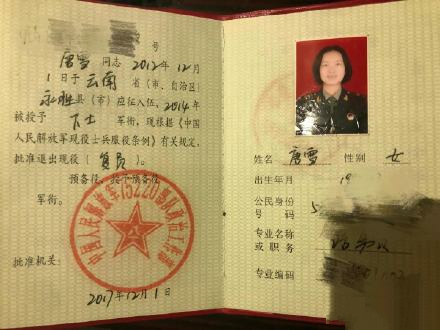 号
唐雪 同志 2012 年 12 月
1 日于 云南 省(市、自治区)
永胜 县(市)应征入伍,2014 年
被授予 下士 军衔,现根据《中国
人民解放军现役士兵服役条例》有关规定,
批准退出现役(复员)。
预备役,授予预备役
军衔。
批准机关:
中国人民解放军75220部队政治工作部
2017年12月1日
姓名 唐雪 性别 女
出生年月 19
公民身份
号码 5
专业名称
或职务
专业编码